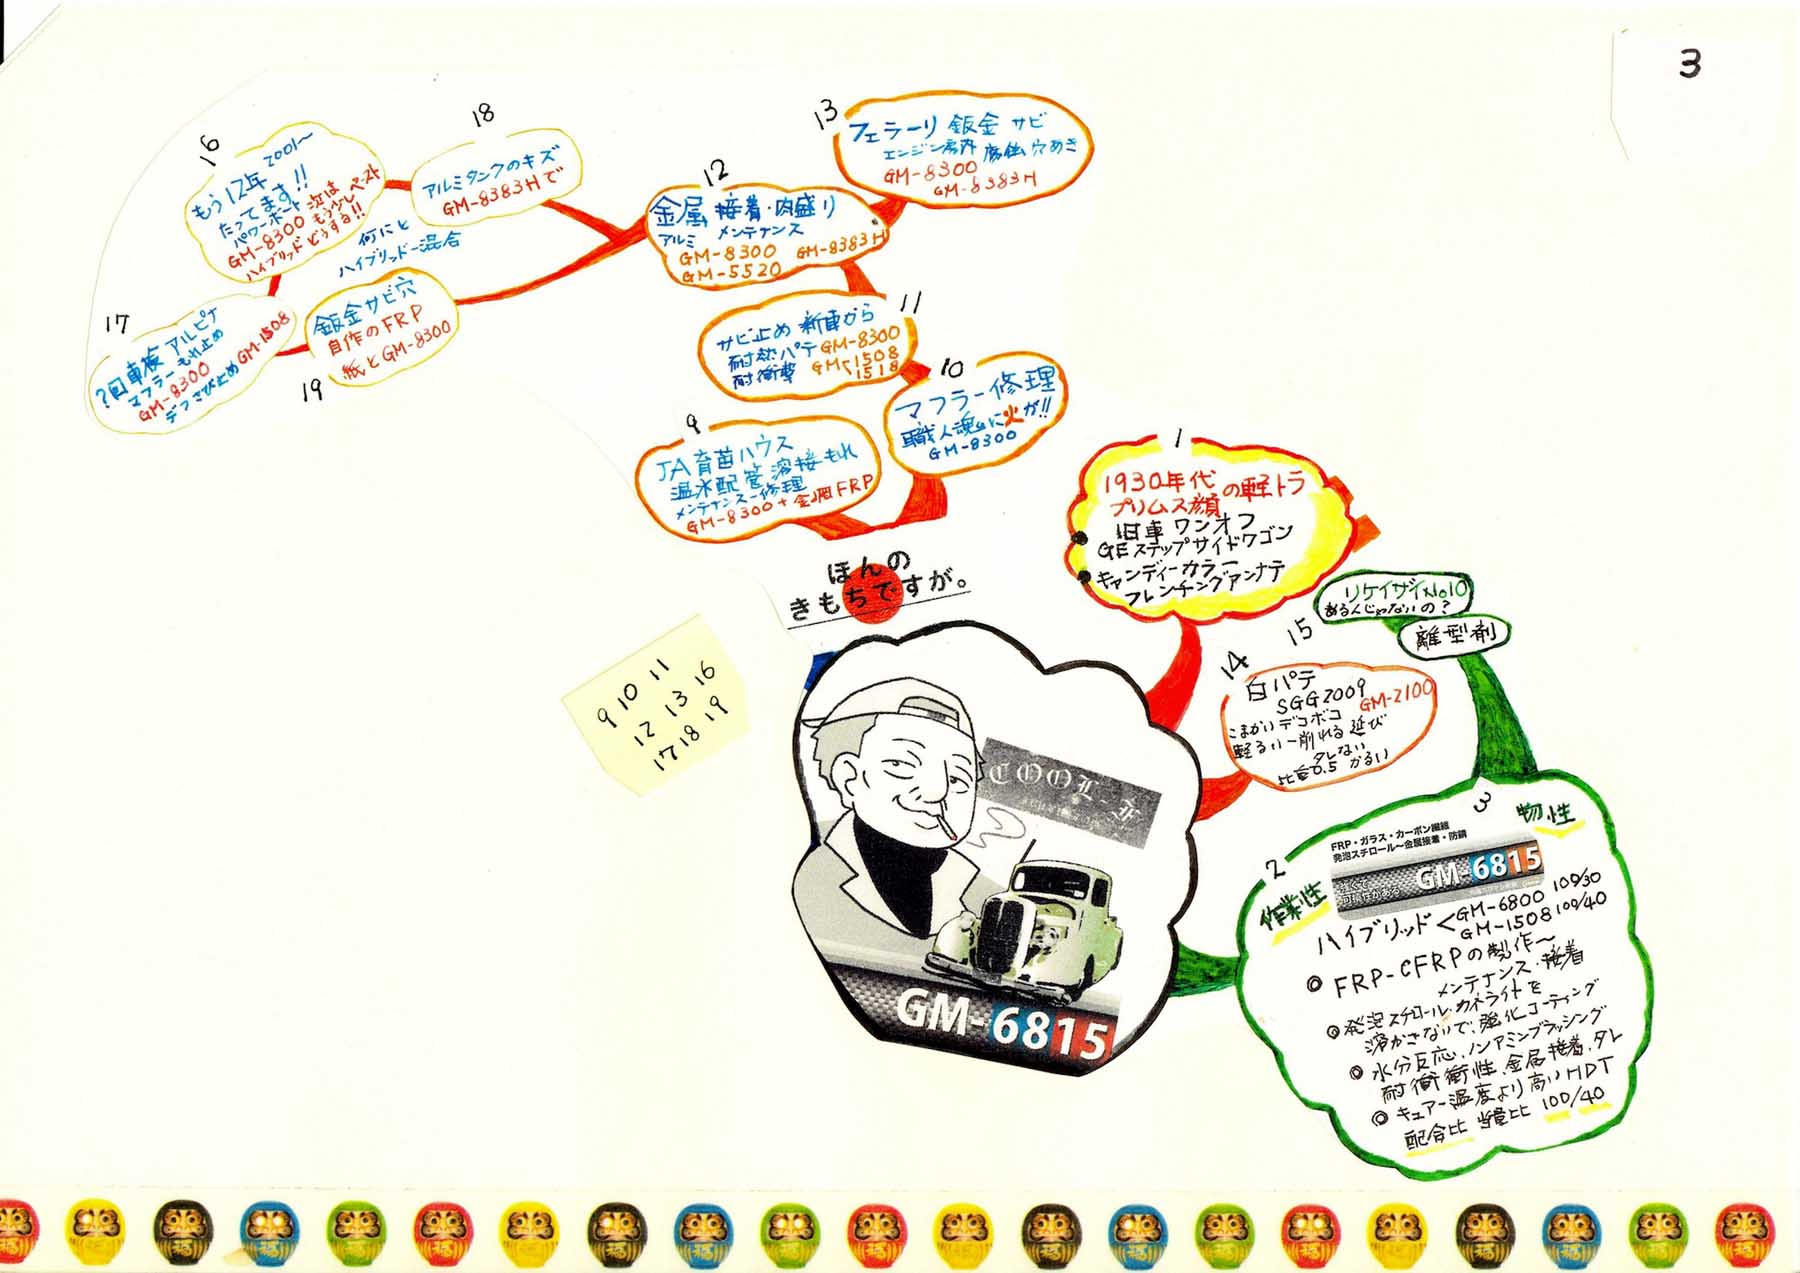 3
16
もう12年 2001〜
たってます!!
パワーボート
GM-8300 次は もう少しペースト
ハイブリッド どうする!!
18
アルミタンクのキズ
GM-8383Hで
何にと
ハイブリッドー混合
17
?回車検 アルピナ
マフラー もれ止め
GM-8300
デフさび止め GM-1508
19
鈑金サビ穴
自作のFRP
紙とGM-8300
12
金属 接着・肉盛り
アルミ メンテナンス
GM-8300 GM-8383H
GM-5520
13
フェラーリ 鈑金 サビ
エンジン房内 腐蝕 穴あき
GM-8300
GM-8383H
11
サビ止め 新車から
耐熱パテ GM-8300
耐衝撃 GM<1508
1518
10
マフラー修理
職人魂に火が!!
GM-8300
9
JA育苗ハウス
温水配管溶接もれ
メンテナンス-修理
GM-8300+金網FRP
1
1930年代の軽トラ
プリムス顔
● 旧車ワンオフ
GEステップサイドワゴン
● キャンディーカラー
フレンチングアンテナ
15
リケイザイNo10
あるんじゃないの?
離型剤
14
白パテ
SGG2009
GM-2100
こまかいデコボコ
軽るい-削れる 延び
タレない
比重0.5 かるい
ほんの
きもちですが。
9 10 11
12 13 16
17 18 19
COOL-F
GM-6815
2
作業性
3
物性
FRP・ガラス・カーボン繊維
発泡スチロール〜金属接着・防錆
GM-6815
ハイブリッド<GM-6800 100/30
GM-1508 100/40
◎ FRP-CFRPの製作〜
メンテナンス・接着
◎ 発泡スチロール、カネライトを
溶かさないで、強化コーティング
◎ 水分反応、ノンアミンブラッシング
耐衝衝性、金属接着、タレ
◎ キュアー温度より高いHDT
配合比 当量比 100/40